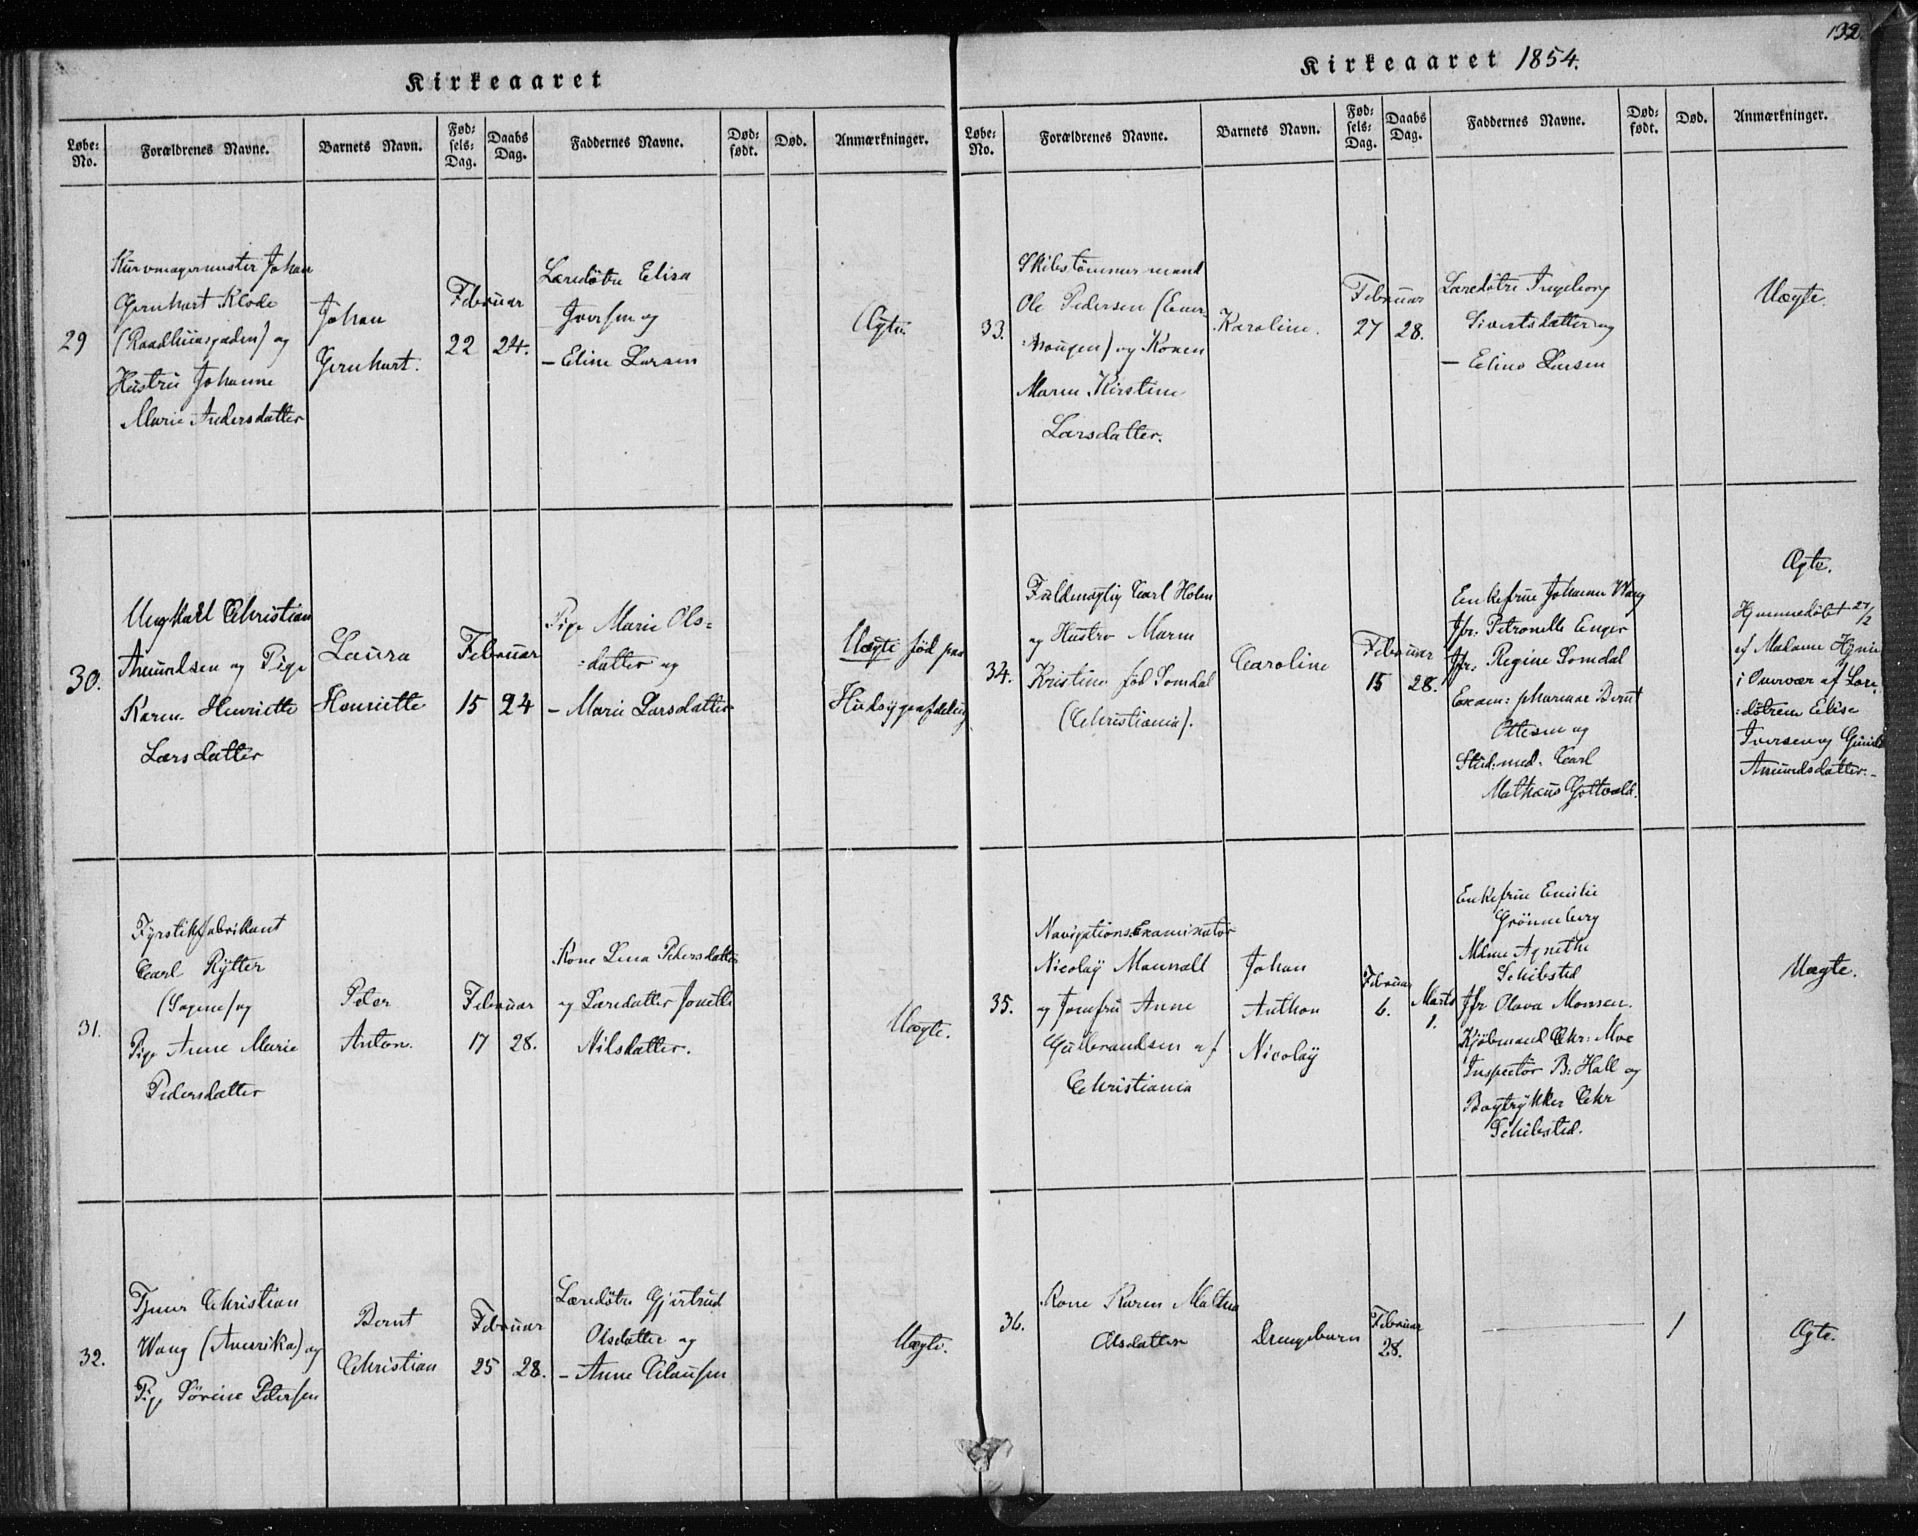 132.
Kirkeaaret
Løbe-No.
Forældrenes Navne.
Barnets Navn.
Fødsels-Dag.
Daabs Dag.
Faddernes Navne.
Dødfødt.
Død.
Anmærkninger.
29
Kurvmagermester Johan
Gernhart Klode
(Raadhuusgaden) og
Hustru Johanne
Marie Andersdatter
Johan
Gernhart.
Februar
22 24.
Læredøtre Elisa
Iversen og
– Eline Larsen
Ægte.
30.
Ungkarl Christian
Amundsen og Pige
Karen Henriette
Larsdatter
Laura
Henriette
Februar
15 24
Pige Marie Ols-
:datter og
– Marie Larsdatter
Uægte fød paa
Hudsygeafdeling
31.
Fyrstikfabrikant
Carl Rytter
(Sagene) og
Pige Anne Marie
Pedersdatter
Peter
Anton.
Februar
17 28.
Kone Lina Pedersdatter
og Læredatter Jonette
Nilsdatter.
Uægte.
32.
Christian
Wang (Amerika) og
Pige Sørine Petersen
Bernt
Christian
Februar
25 28.
Læredøtre Gjertrud
Olsdatter og
– Anne Clausen
Uægte.
Kirkeaaret 1854.
Løbe-No.
Forældrenes Navne.
Barnets Navn.
Fødsels-Dag.
Daabs Dag.
Faddernes Navne.
Dødfødt.
Død.
Anmærkninger.
33.
Skibstømmermand
Ole Pedersen (Ener-
:haugen) og Konen
Maren Kirstine
Larsdatter.
Karoline.
Februar
27 28.
Læredøtre Ingeborg
Sivertsdatter og
– Eline Larsen
Uægte.
34.
Fuldmægtig Carl Holm
og Hustro Maren
Kristine fød Somdal
(Christiania).
Caroline
Februar
15 28.
Enkefrue Johanne Wang
Jfr: Petronelle Enger
Jfr: Regine Somdal
Exam: pharmac Bernt
Ottesen og
Stud: med. Carl
Mathæus Gottwald.
Ægte.
Hjemmedøbt 27/2
af Madame
i Overvær af Lære-
:døtrene Elise
Iversen og Gunild
Amundsdatter.-
35.
Navigations Examinator
Nicolay
og Jomfru Anne
Gulbrandsen af
Christiania
Johan
Anthon
Nicolay
Februar
6.
Marts
1.
Enkefrue Emilie
Grønneberg
Mdme Agnethe
Schibsted
Jfr Olava Monsen.
Kjøbmand Chr: Moe
Inspectør B: Hall og
Bogtrykker Chr
Schibsted.
Uægte.
36.
Kone Karen Mathea
Olsdatter
Drengebarn
Februar
28.
1
Ægte.